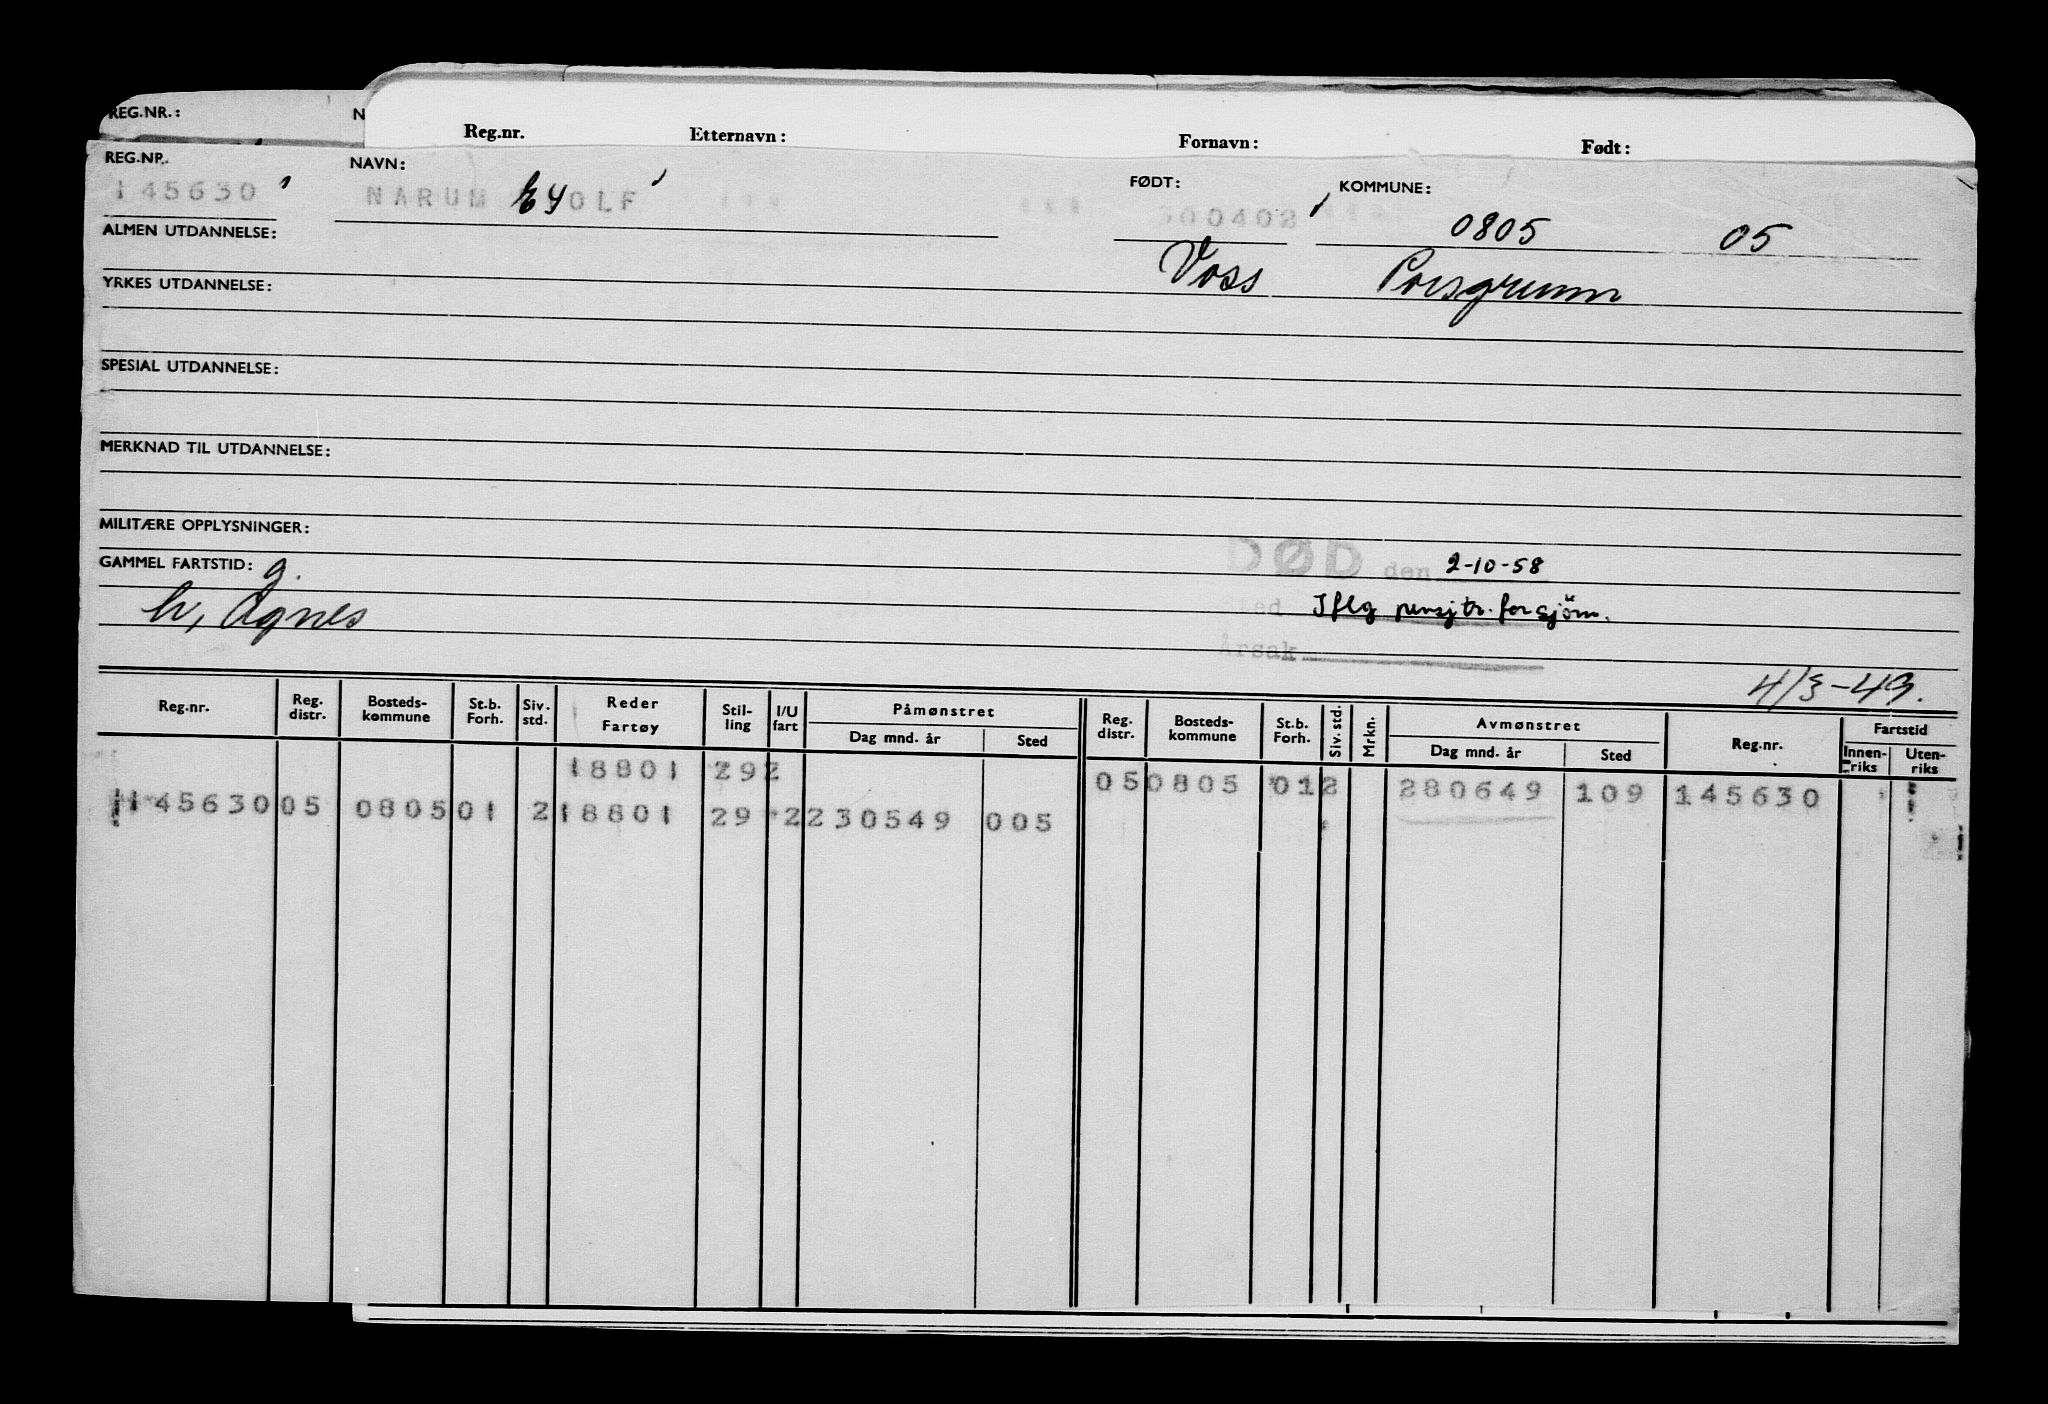 REG.NR.: N
Reg.nr. Etternavn: Fornavn: Født:
REG.NR. NAVN: FØDT: KOMMUNE:
145630 NARUM EYOLF 300402 0805 05
ALMEN UTDANNELSE:
Voss Porsgrunn
YRKES UTDANNELSE:
SPESIAL UTDANNELSE:
MERKNAD TIL UTDANNELSE:
MILITÆRE OPPLYSNINGER:
GAMMEL FARTSTID: g. DØD den 2-10-58
h, Agnes Sted Iflg pensjtr. for sjøm.
Årsak
4/3-49.
Reg.nr. Reg. distr. Bosteds-kommune St.b. Forh. Siv. std. Reder Fartøy Stil-ling I/U fart Påmønstret Dag mnd. år Sted Reg. distr. Bosteds-kommune St.b. Forh. Siv. std. Mrkn. Avmønstret Dag mnd. år Sted Reg.nr. Fartstid Innen-riks Uten-riks
18801 292 05 0805 01 2 280649 109 145630
145630 05 0805 01 2 18801 29 2 230549 005